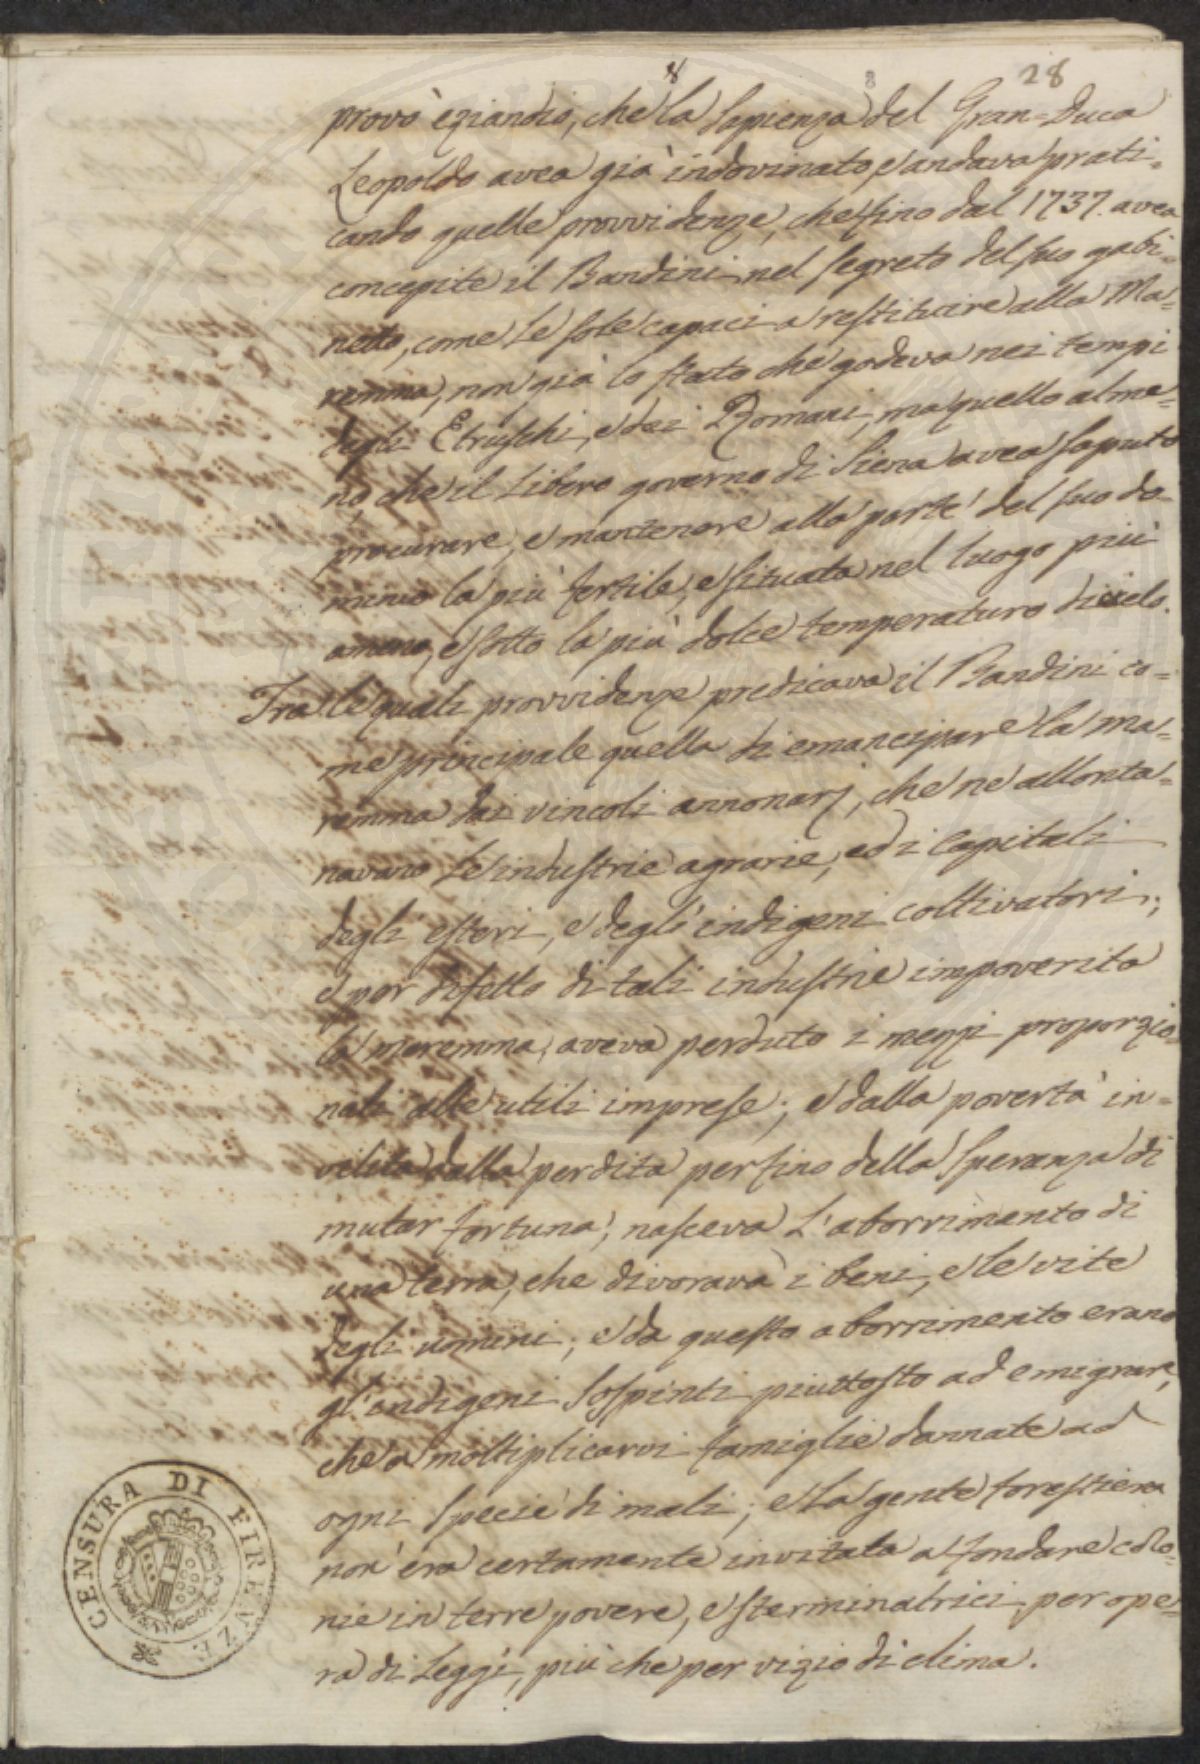 8 8 28
provò eziandio, che la Sapienza del Gran=Duca
Leopoldo avea già indovinato, e andava prati=
cando quelle provvidenze, che fino dal 1737. avea
concepite il Bandini nel segreto del suo gabi=
netto, come le sole capaci a restituire alla Ma=
remma, non già lo stato che godeva nei tempi
degli Etruschi, e dei Romani, ma quello alme=
no che il libero governo di Siena avea saputo
procurare, e mantenere alla parte del suo do=
minio la più fertile, e situata nel luogo più
ameno, e sotto la più dolce temperatura di cielo.
Tra le quali provvidenze predicava il Bandini co=
me principale quella di emancipare la ma=
remma dai vincoli annonarj, che ne allonta=
navano le industrie agrarie, ed i Capitali
degli esteri, e degl'indigeni coltivatori;
e per difetto di tali industrie impoverita
la maremma, aveva perduto i mezzi proporzio=
nali alle utili imprese; e dalla povertà in=
vilita dalla perdita perfino della speranza di
mutar fortuna, nasceva l'aborrimento di
una terra, che divorava i beni, e le vite
degli uomini; e da questo aborrimento erano
gl'indigeni sospinti piuttosto ad emigrare,
che a moltiplicarvi famiglie dannate ad
ogni specie di mali; e la gente forestiera
non era certamente invitata a fondare colo=
nie in terre povere, e sterminatrici per ope=
ra di Leggi, più che per vizio di clima.
CENSURA DI FIRENZE